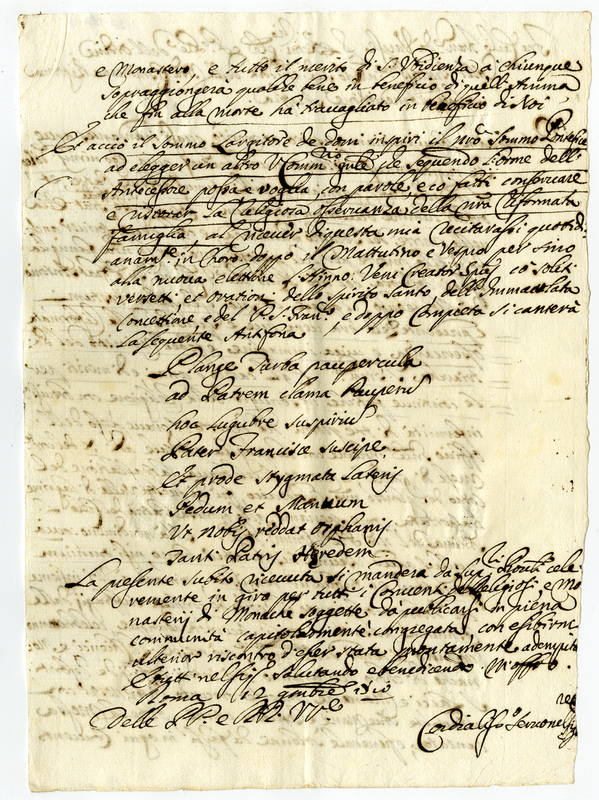 e Monastero, e tutto il merito di S. Vbidienza a chiunque
sopraggiongera qualche bene in beneficio di quell'Anima
che fin alla morte ha travagliato in beneficio di Noi
Et acciò il Sommo Largitore de doni inspiri il nro Sommo Pontefice
ad elegger un altro V. Comm.rio Gnle che seguendo l'orme dell'
Antecessore possa e voglia con parole, e co fatti conservare
e ristorar la Religiosa osservanza della nra Riformata
famiglia, al ricever di questa mia recitarassi quotidi
anam.te in Choro doppo il Mattutino e Vespro per sino
alla nuova elettione l'Hinno Veni Creator Sps co soliti
versetti et oration dello Spirito Santo, dell'Immacolata
Concettione e del P. S. Fran.co, e doppo Compieta si canterà
la seguente Antifona
Plange turba paupercula
ad Patrem clama Pauperis
hoc lugubre suspirium
Pater Francisce suscipe
Et prode stygmata Lateris
Pedum et Manuum
Vt nobis reddat orphanis
tanti Patris Heredem.
La presente subito ricevuta si manderà da cele
remente in giro per tutti i Conventi de Religiosi, e Mo
nasterij di Monache soggette da publicarsi in piena
communità capitolarmente congregata, con
ulterior riscontro d'esser stata prontamente adempita
salutando e benedicendo
Roma 12
Delle PP. e RR. VV.